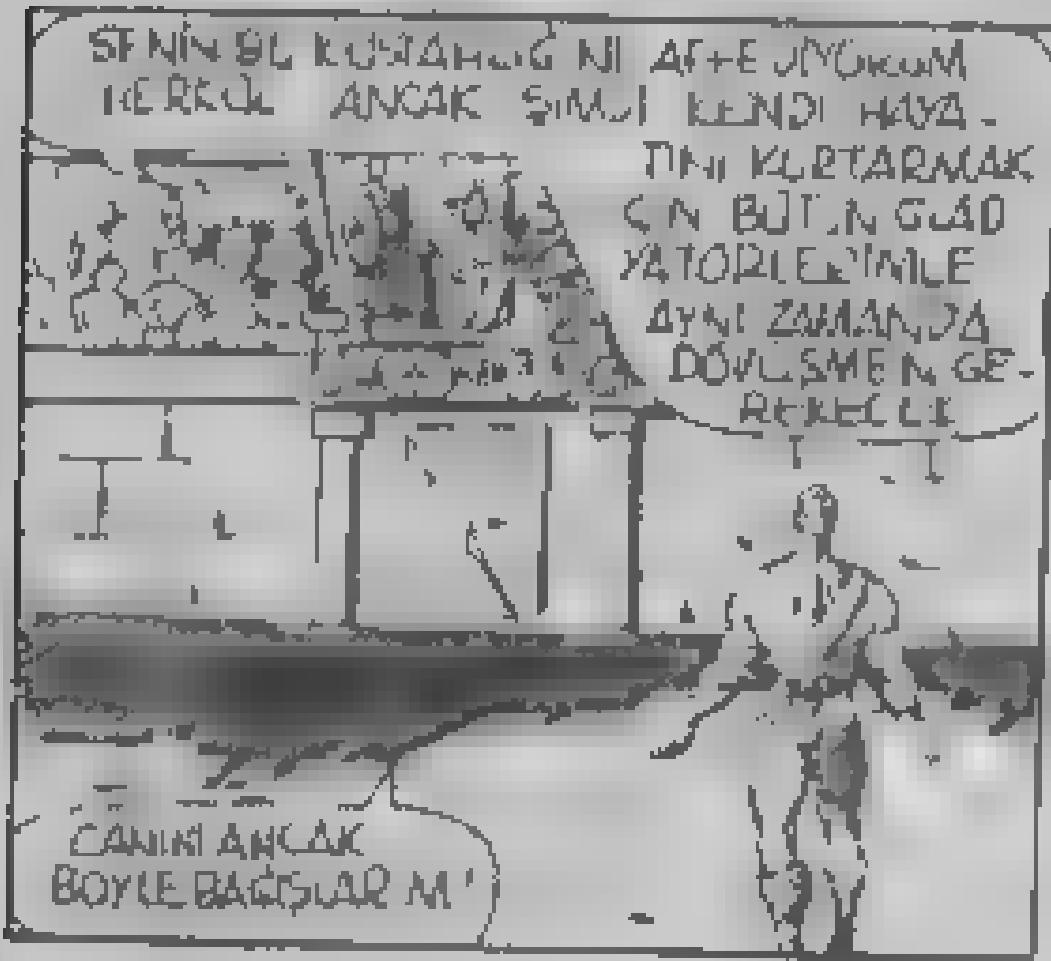 SENİN BU KÜSTAHLIĞINI AFFEDİYORUM
HERKÜL ANCAK ŞİMDİ KENDİ HAYA-
TINI KURTARMAK
İÇİN BÜTÜN GLAD
YATÖRLERİMLE
AYNI ZAMANDA
DÖVÜŞMEN GE-
REKECEK
CANINI ANCAK
BÖYLE BAĞIŞLARIM!